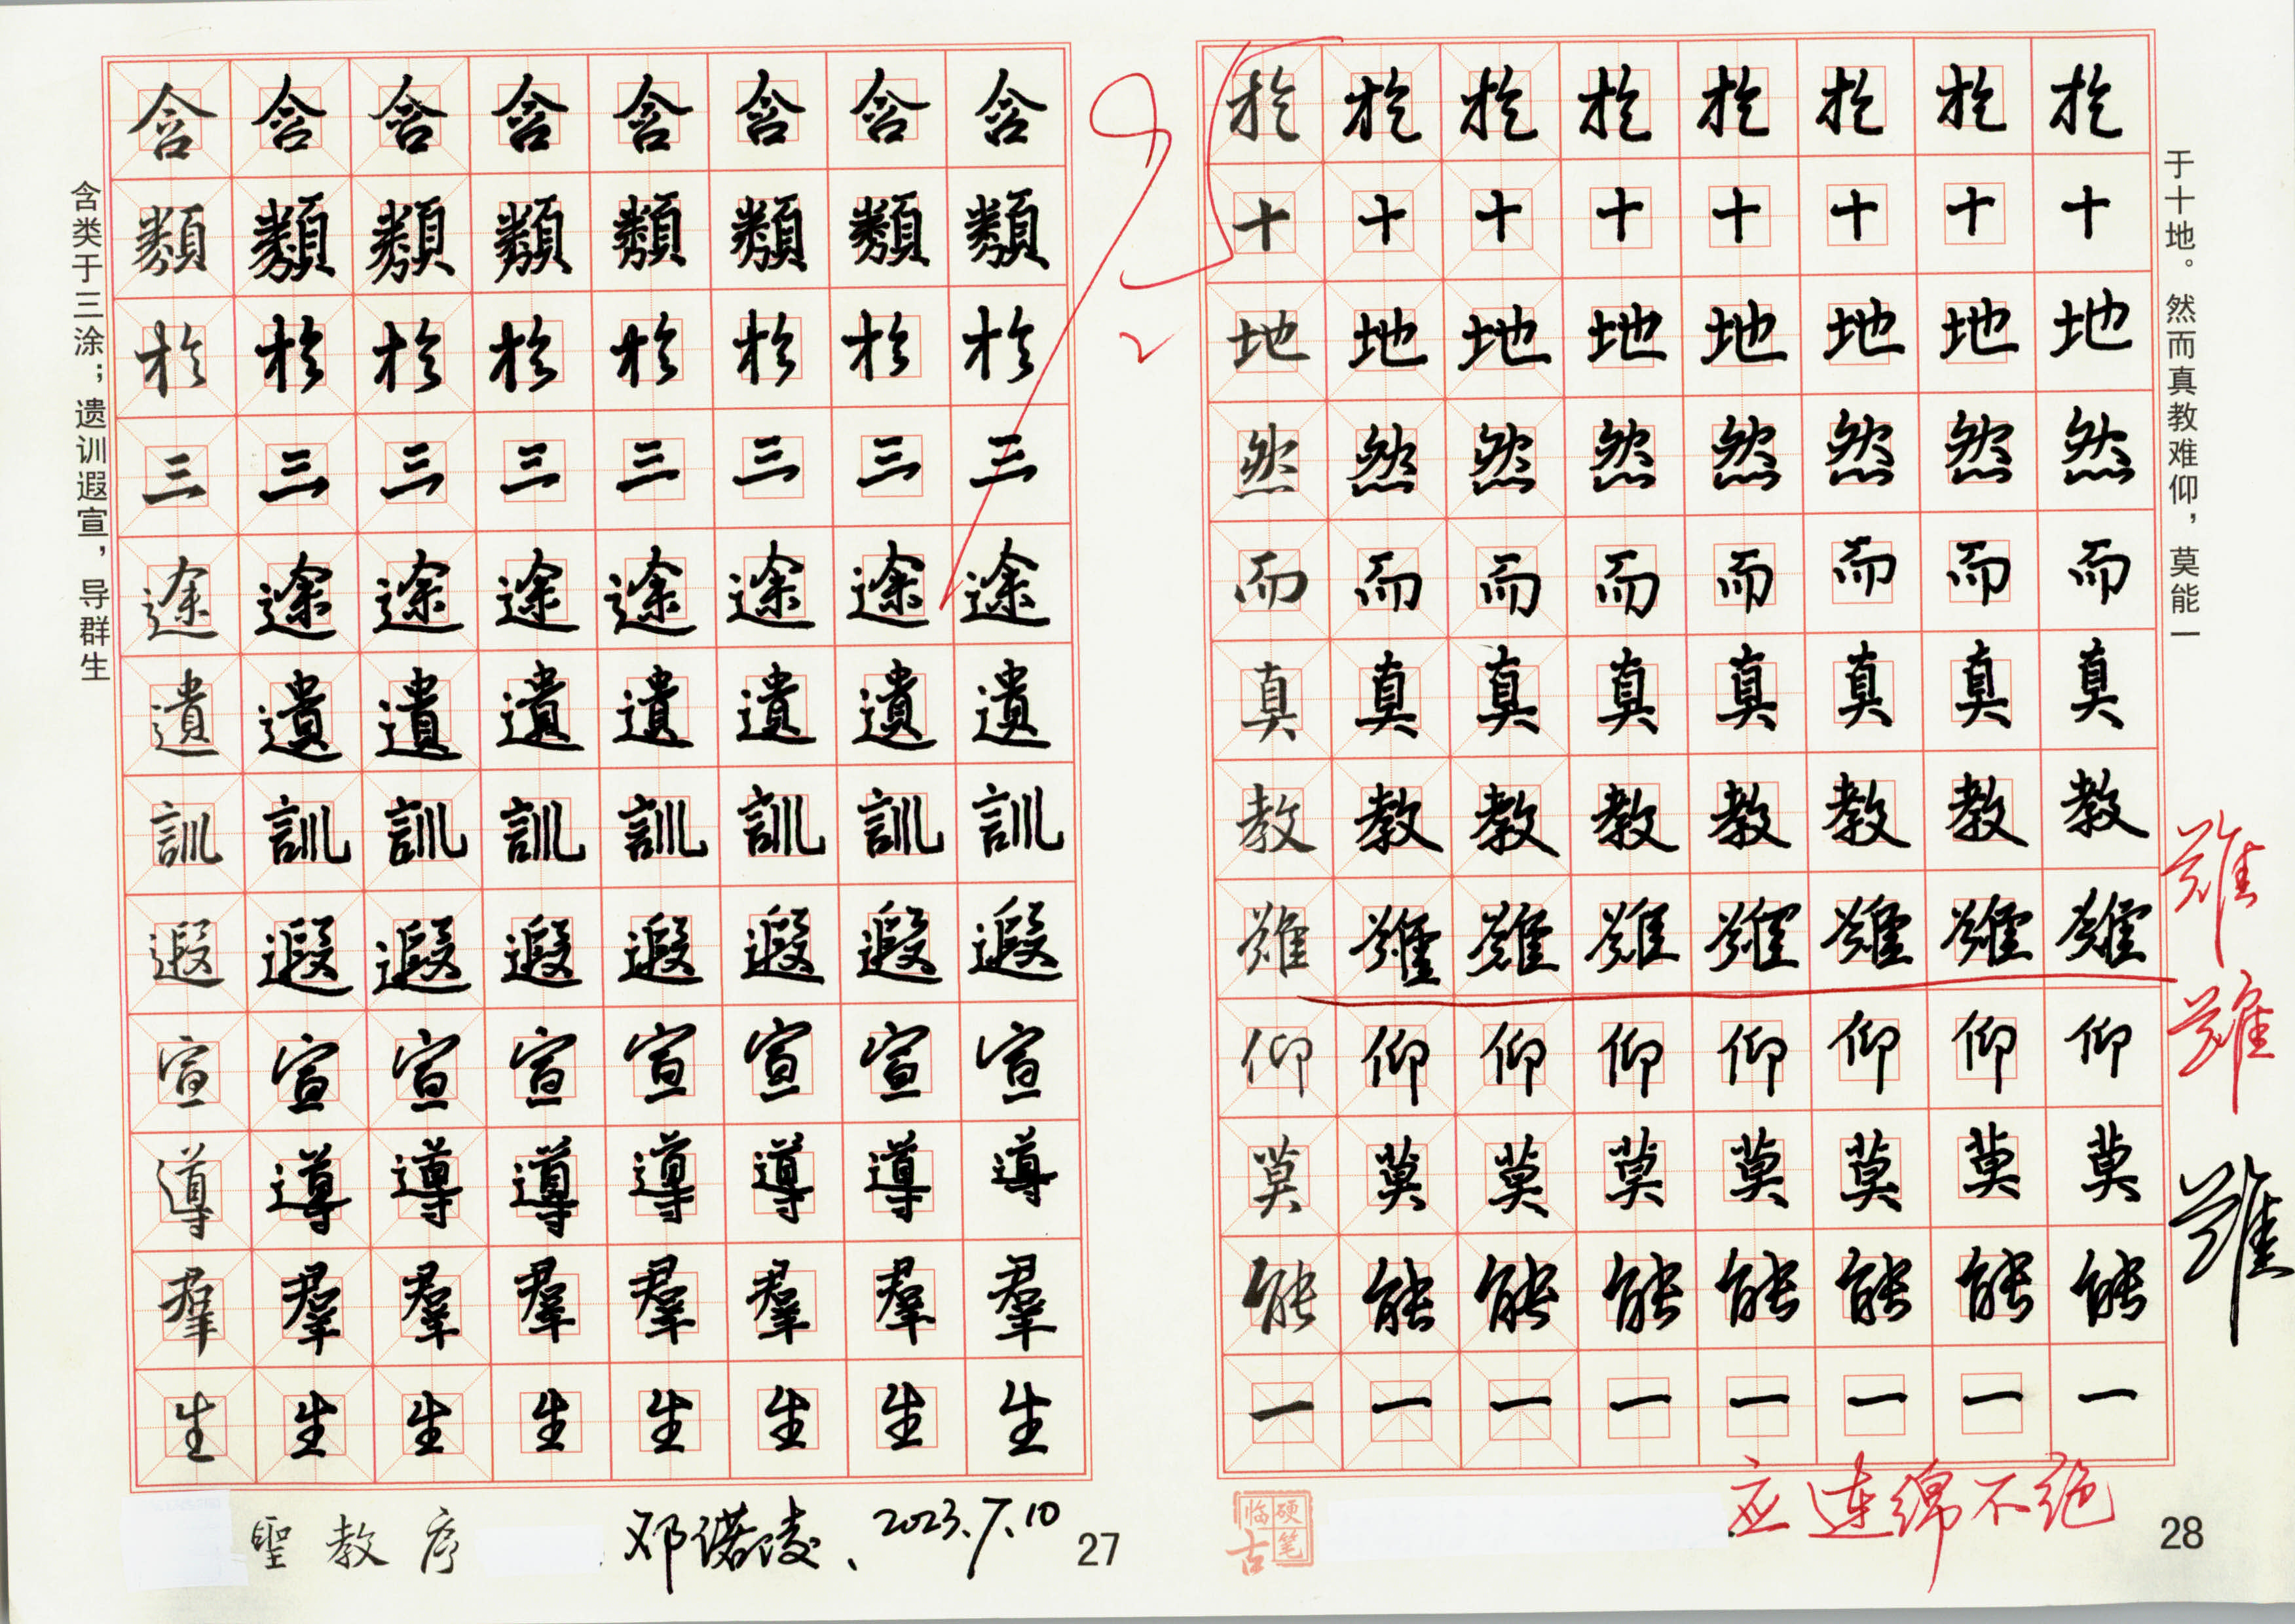 含类于三涂；遗训遐宣，导群生
含類於三途遺訓遐宣導羣生
含類於三途遺訓遐宣導羣生
含類於三途遺訓遐宣導羣生
含類於三途遺訓遐宣導羣生
含類於三途遺訓遐宣導羣生
含類於三途遺訓遐宣導羣生
含類於三途遺訓遐宣導羣生
含類於三途遺訓遐宣導羣生
聖教序
邓诺陵、2023.7.10
27
於十地然而真教難仰莫能一
於十地然而真教難仰莫能一
於十地然而真教難仰莫能一
於十地然而真教難仰莫能一
於十地然而真教難仰莫能一
於十地然而真教難仰莫能一
於十地然而真教難仰莫能一
於十地然而真教難仰莫能一
于十地。然而真教难仰，莫能一
難
難
難
硬笔临古
应连绵不绝
28